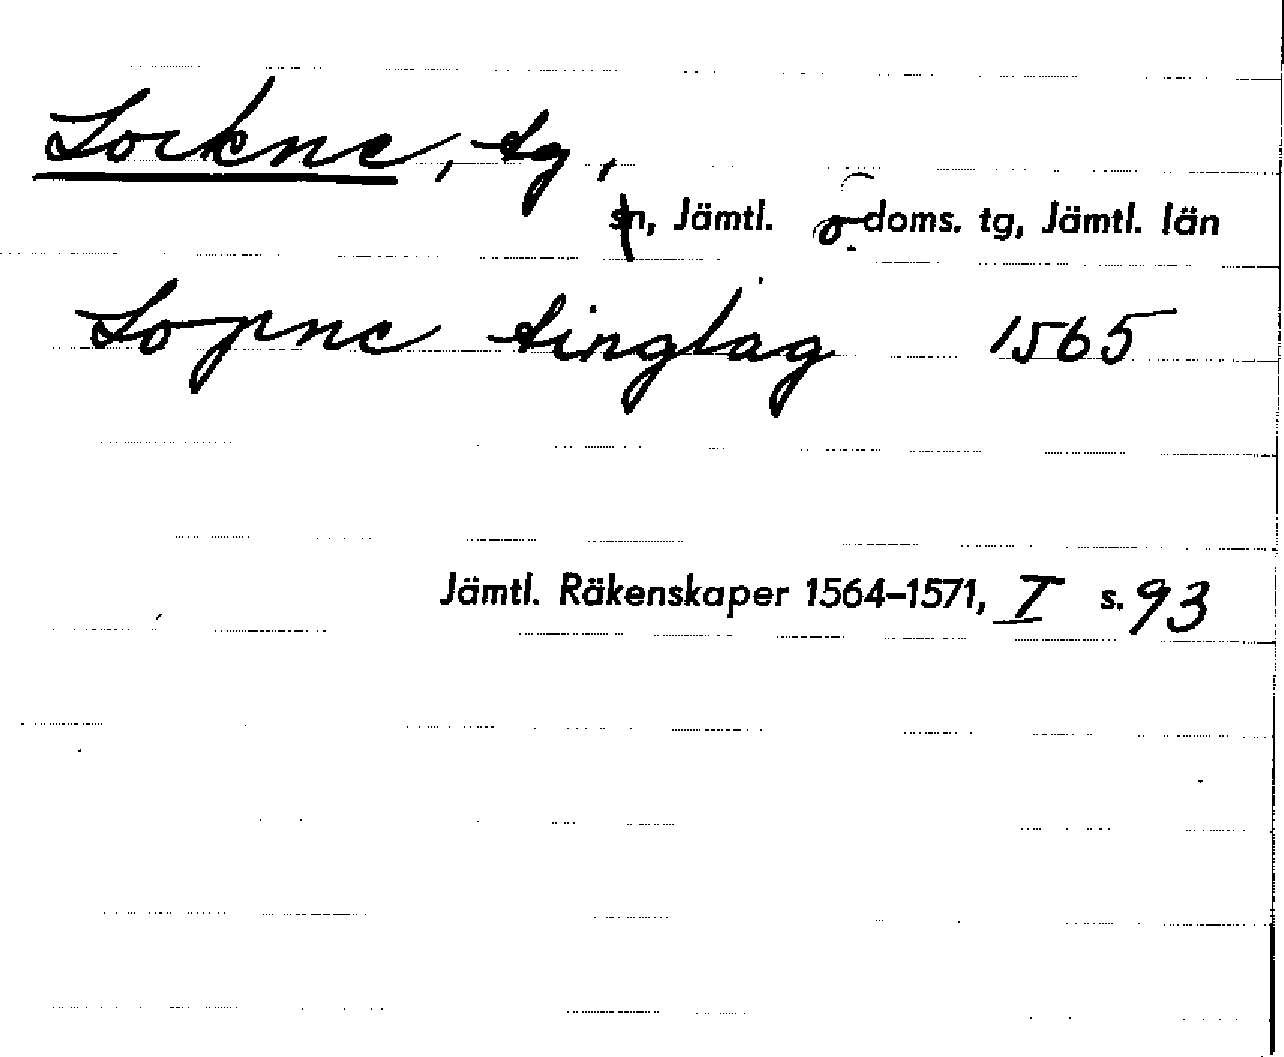 Lockne, tg,
sn, Jämtl. ö. doms. tg, Jämtl. län
Lopne tinglag 1565
Jämtl. Räkenskaper 1564–1571, I s. 93